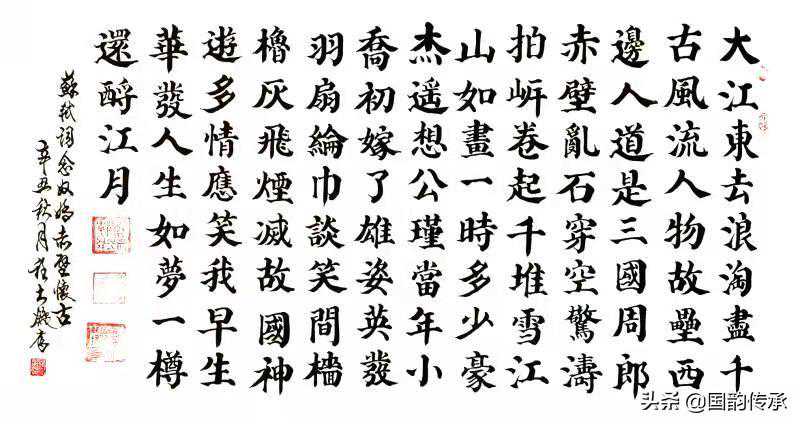 大江東去浪淘盡千
古風流人物故壘西
邊人道是三國周郎
赤壁亂石穿空驚濤
拍岍卷起千堆雪江
山如畫一時多少豪
杰遥想公瑾當年小
喬初嫁了雄姿英發
羽扇綸巾談笑間檣
櫓灰飛煙滅故國神
遊多情應笑我早生
華發人生如夢一樽
還酹江月
蘇軾詞念奴嬌赤壁懷古
辛丑秋月
头条 @国韵传承